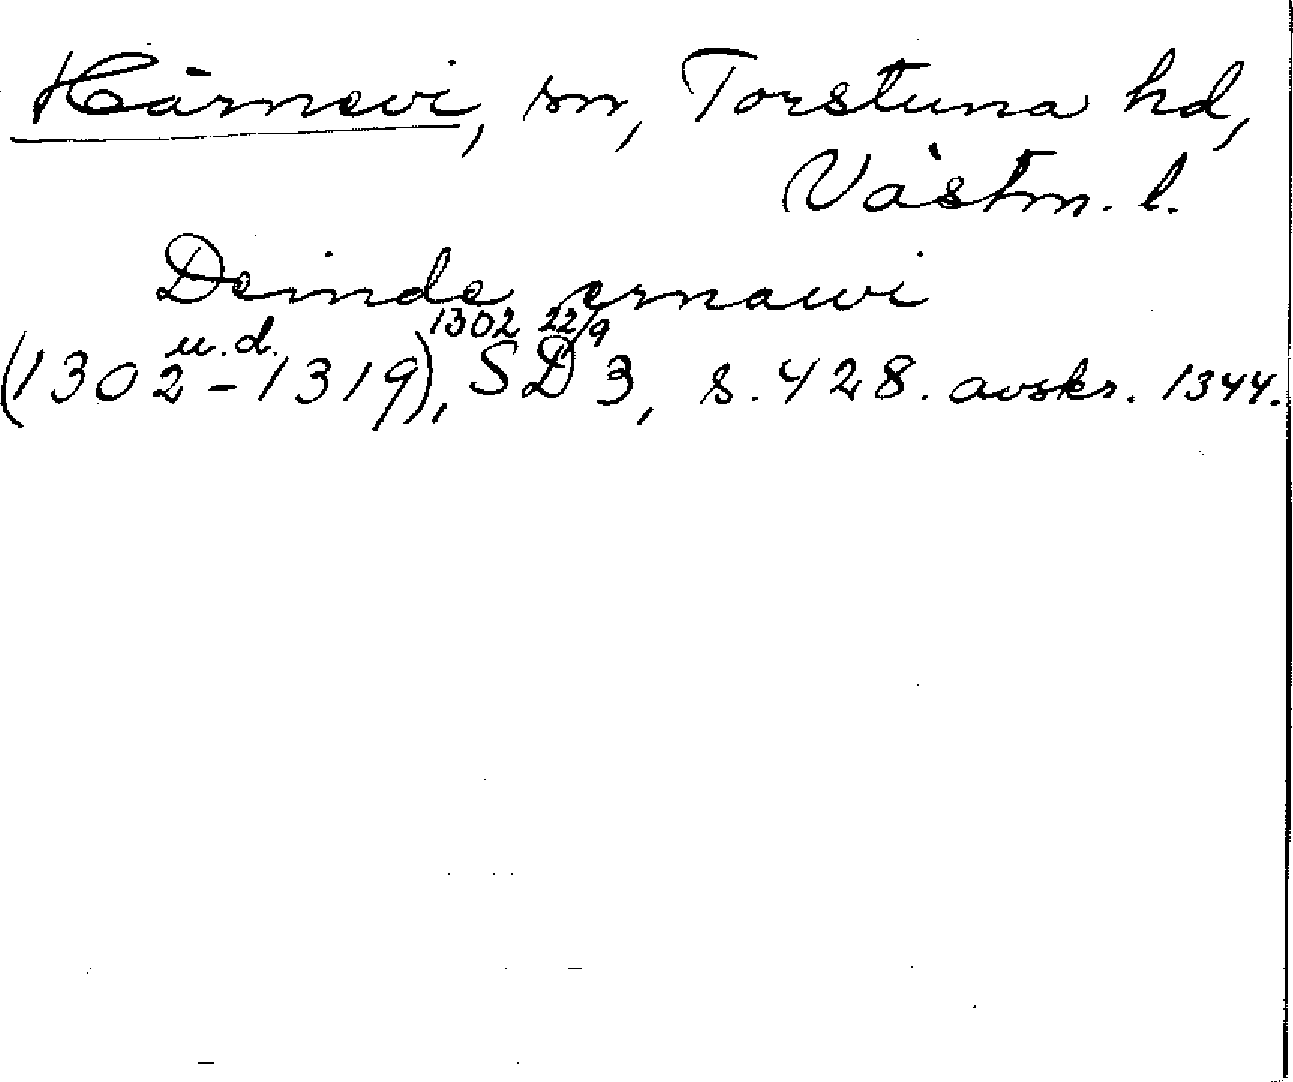 Härnevi, sn, Torstuna hd,
Västm. l.
Deinde ærnawi
1302 22/9
u. d.
(1302–1319), SD 3, s. 428. avskr. 1344.